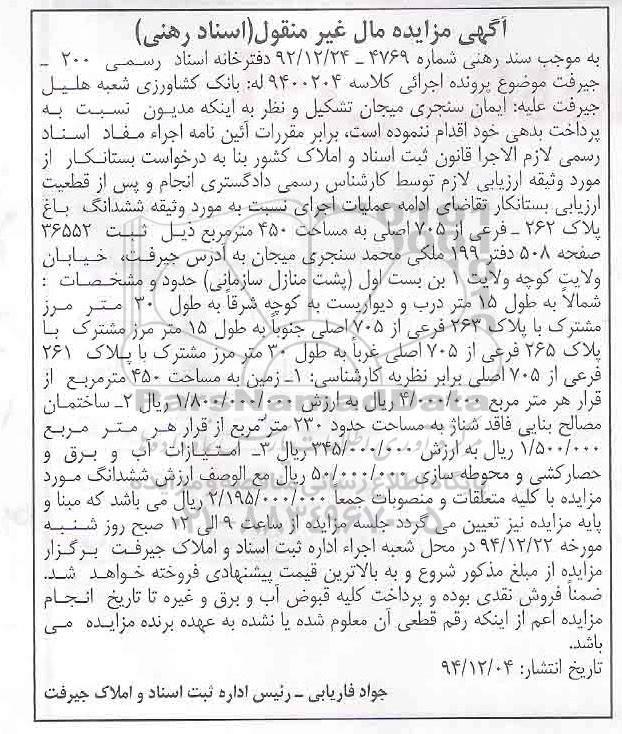 آگهی مزایده مال غیر منقول(اسناد رهنی)
به موجب سند رهنی شماره ۴۷۶۹ ـ ۹۲/۱۲/۲۴ دفترخانه اسناد رسمی ۲۰۰ ـ
جیرفت موضوع پرونده اجرائی کلاسه ۹۴۰۰۲۰۴ له: بانک کشاورزی شعبه هلیل
جیرفت علیه: ایمان سنجری میجان تشکیل و نظر به اینکه مدیون نسبت به
پرداخت بدهی خود اقدام ننموده است، برابر مقررات آئین نامه اجراء مفاد اسناد
رسمی لازم الاجرا قانون ثبت اسناد و املاک کشور بنا به درخواست بستانکار از
مورد وثیقه ارزیابی لازم توسط کارشناس رسمی دادگستری انجام و پس از قطعیت
ارزیابی بستانکار تقاضای ادامه عملیات اجرای نسبت به مورد وثیقه ششدانگ باغ
پلاک ۲۶۲ ـ فرعی از ۷۰۵ اصلی به مساحت ۴۵۰ مترمربع ذیل ثبت ۳۶۵۵۲
صفحه ۵۰۸ دفتر ۱۹۹ ملکی محمد سنجری میجان به آدرس جیرفت، خیابان
ولایت کوچه ولایت ۱ بن بست اول (پشت منازل سازمانی) حدود و مشخصات :
شمالاً به طول ۱۵ متر درب و دیواریست به کوچه شرقاً به طول ۳۰ متر مرز
مشترک با پلاک ۲۶۳ فرعی از ۷۰۵ اصلی جنوباً به طول ۱۵ متر مرز مشترک با
پلاک ۲۶۵ فرعی از ۷۰۵ اصلی غرباً به طول ۳۰ متر مرز مشترک با پلاک ۲۶۱
فرعی از ۷۰۵ اصلی برابر نظریه کارشناسی: ۱ـ زمین به مساحت ۴۵۰ مترمربع از
قرار هر متر مربع ۴/۰۰۰/۰۰۰ ریال به ارزش ۱/۸۰۰/۰۰۰/۰۰۰ ریال ۲ـ ساختمان
مصالح بنایی فاقد شناژ به مساحت حدود ۲۳۰ متر مربع از قرار هر متر مربع
۱/۵۰۰/۰۰۰ ریال به ارزش ۳۴۵/۰۰۰/۰۰۰ ریال ۳ـ امتیازات آب و برق و
حصارکشی و محوطه سازی ۵۰/۰۰۰/۰۰۰ ریال مع الوصف ارزش ششدانگ مورد
مزایده با کلیه متعلقات و منصوبات جمعا ۲/۱۹۵/۰۰۰/۰۰۰ ریال می باشد که مبنا و
پایه مزایده نیز تعیین می گردد جلسه مزایده از ساعت ۹ الی ۱۲ صبح روز شنبه
مورخه ۹۴/۱۲/۲۲ در محل شعبه اجراء اداره ثبت اسناد و املاک جیرفت برگزار
مزایده از مبلغ مذکور شروع و به بالاترین قیمت پیشنهادی فروخته خواهد شد.
ضمناً فروش نقدی بوده و پرداخت کلیه قبوض آب و برق و غیره تا تاریخ انجام
مزایده اعم از اینکه رقم قطعی آن معلوم شده یا نشده به عهده برنده مزایده می
باشد.
تاریخ انتشار: ۹۴/۱۲/۰۴
جواد فاریابی ـ رئیس اداره ثبت اسناد و املاک جیرفت
ParsNamadData